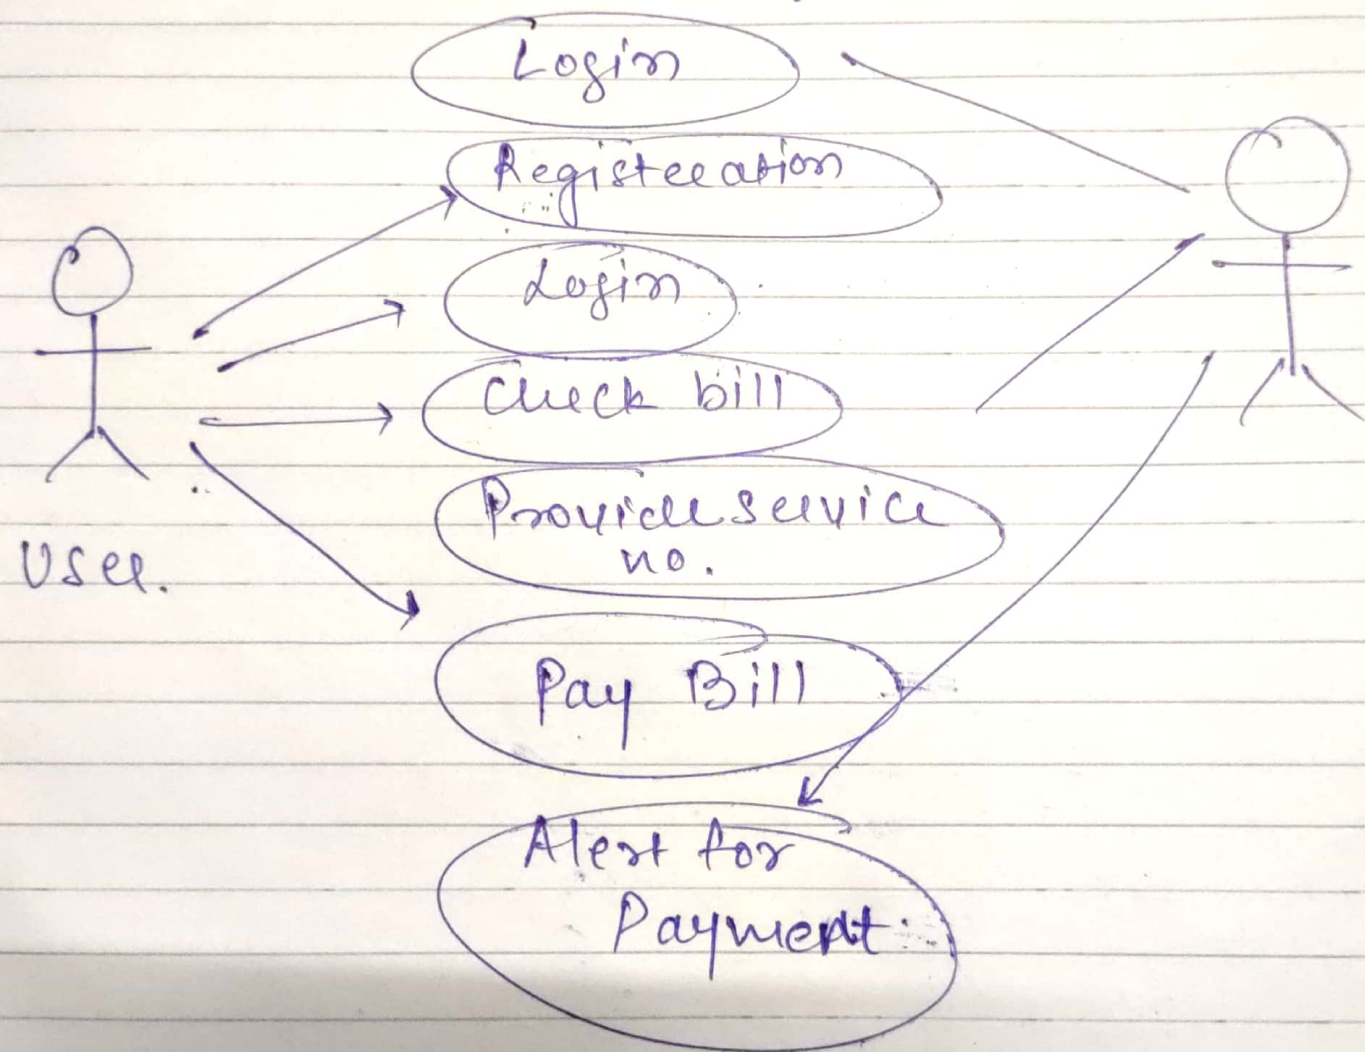 Login
Registeration
Login
Check bill
Provide service
no.
User.
Pay Bill
Alert for
Payment.